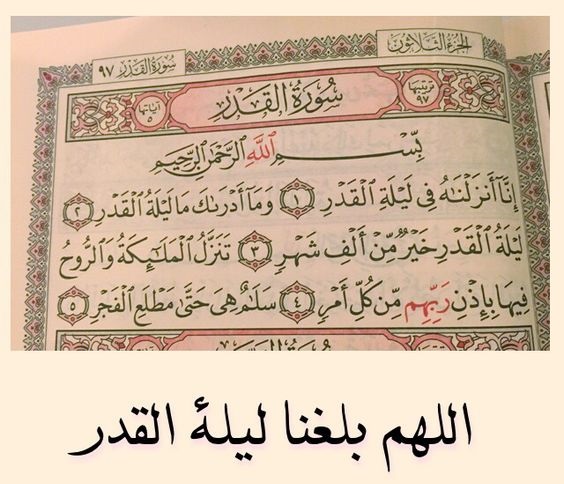 الجزء الثلاثون
سورة القدر ٩٧
سُورَةُ القَدۡرِ
ترتيبها ٩٧
آياتها ٥
بِسۡمِ ٱللَّهِ ٱلرَّحۡمَٰنِ ٱلرَّحِيمِ
إِنَّآ أَنزَلۡنَٰهُ فِي لَيۡلَةِ ٱلۡقَدۡرِ ١ وَمَآ أَدۡرَىٰكَ مَا لَيۡلَةُ ٱلۡقَدۡرِ ٢
لَيۡلَةُ ٱلۡقَدۡرِ خَيۡرٞ مِّنۡ أَلۡفِ شَهۡرٖ ٣ تَنَزَّلُ ٱلۡمَلَٰٓئِكَةُ وَٱلرُّوحُ
فِيهَا بِإِذۡنِ رَبِّهِم مِّن كُلِّ أَمۡرٖ ٤ سَلَٰمٌ هِيَ حَتَّىٰ مَطۡلَعِ ٱلۡفَجۡرِ ٥
اللهم بلغنا ليلة القدر